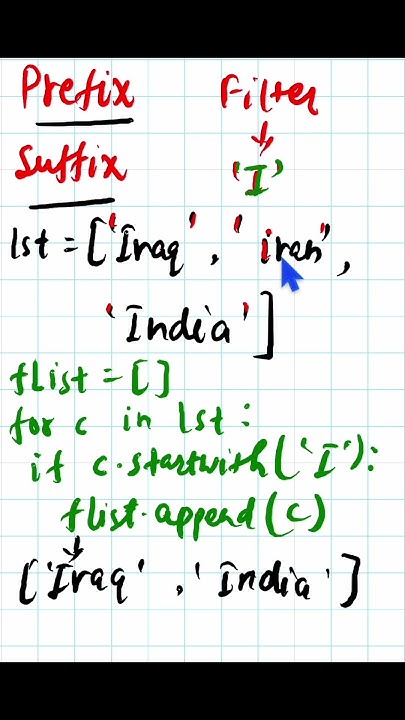 Prefix Filter
Suffix 'I'
lst = ['Iraq', 'iran',
'India']
flist = []
for c in lst:
if c.startwith('I'):
flist.append(c)
['Iraq', 'India']